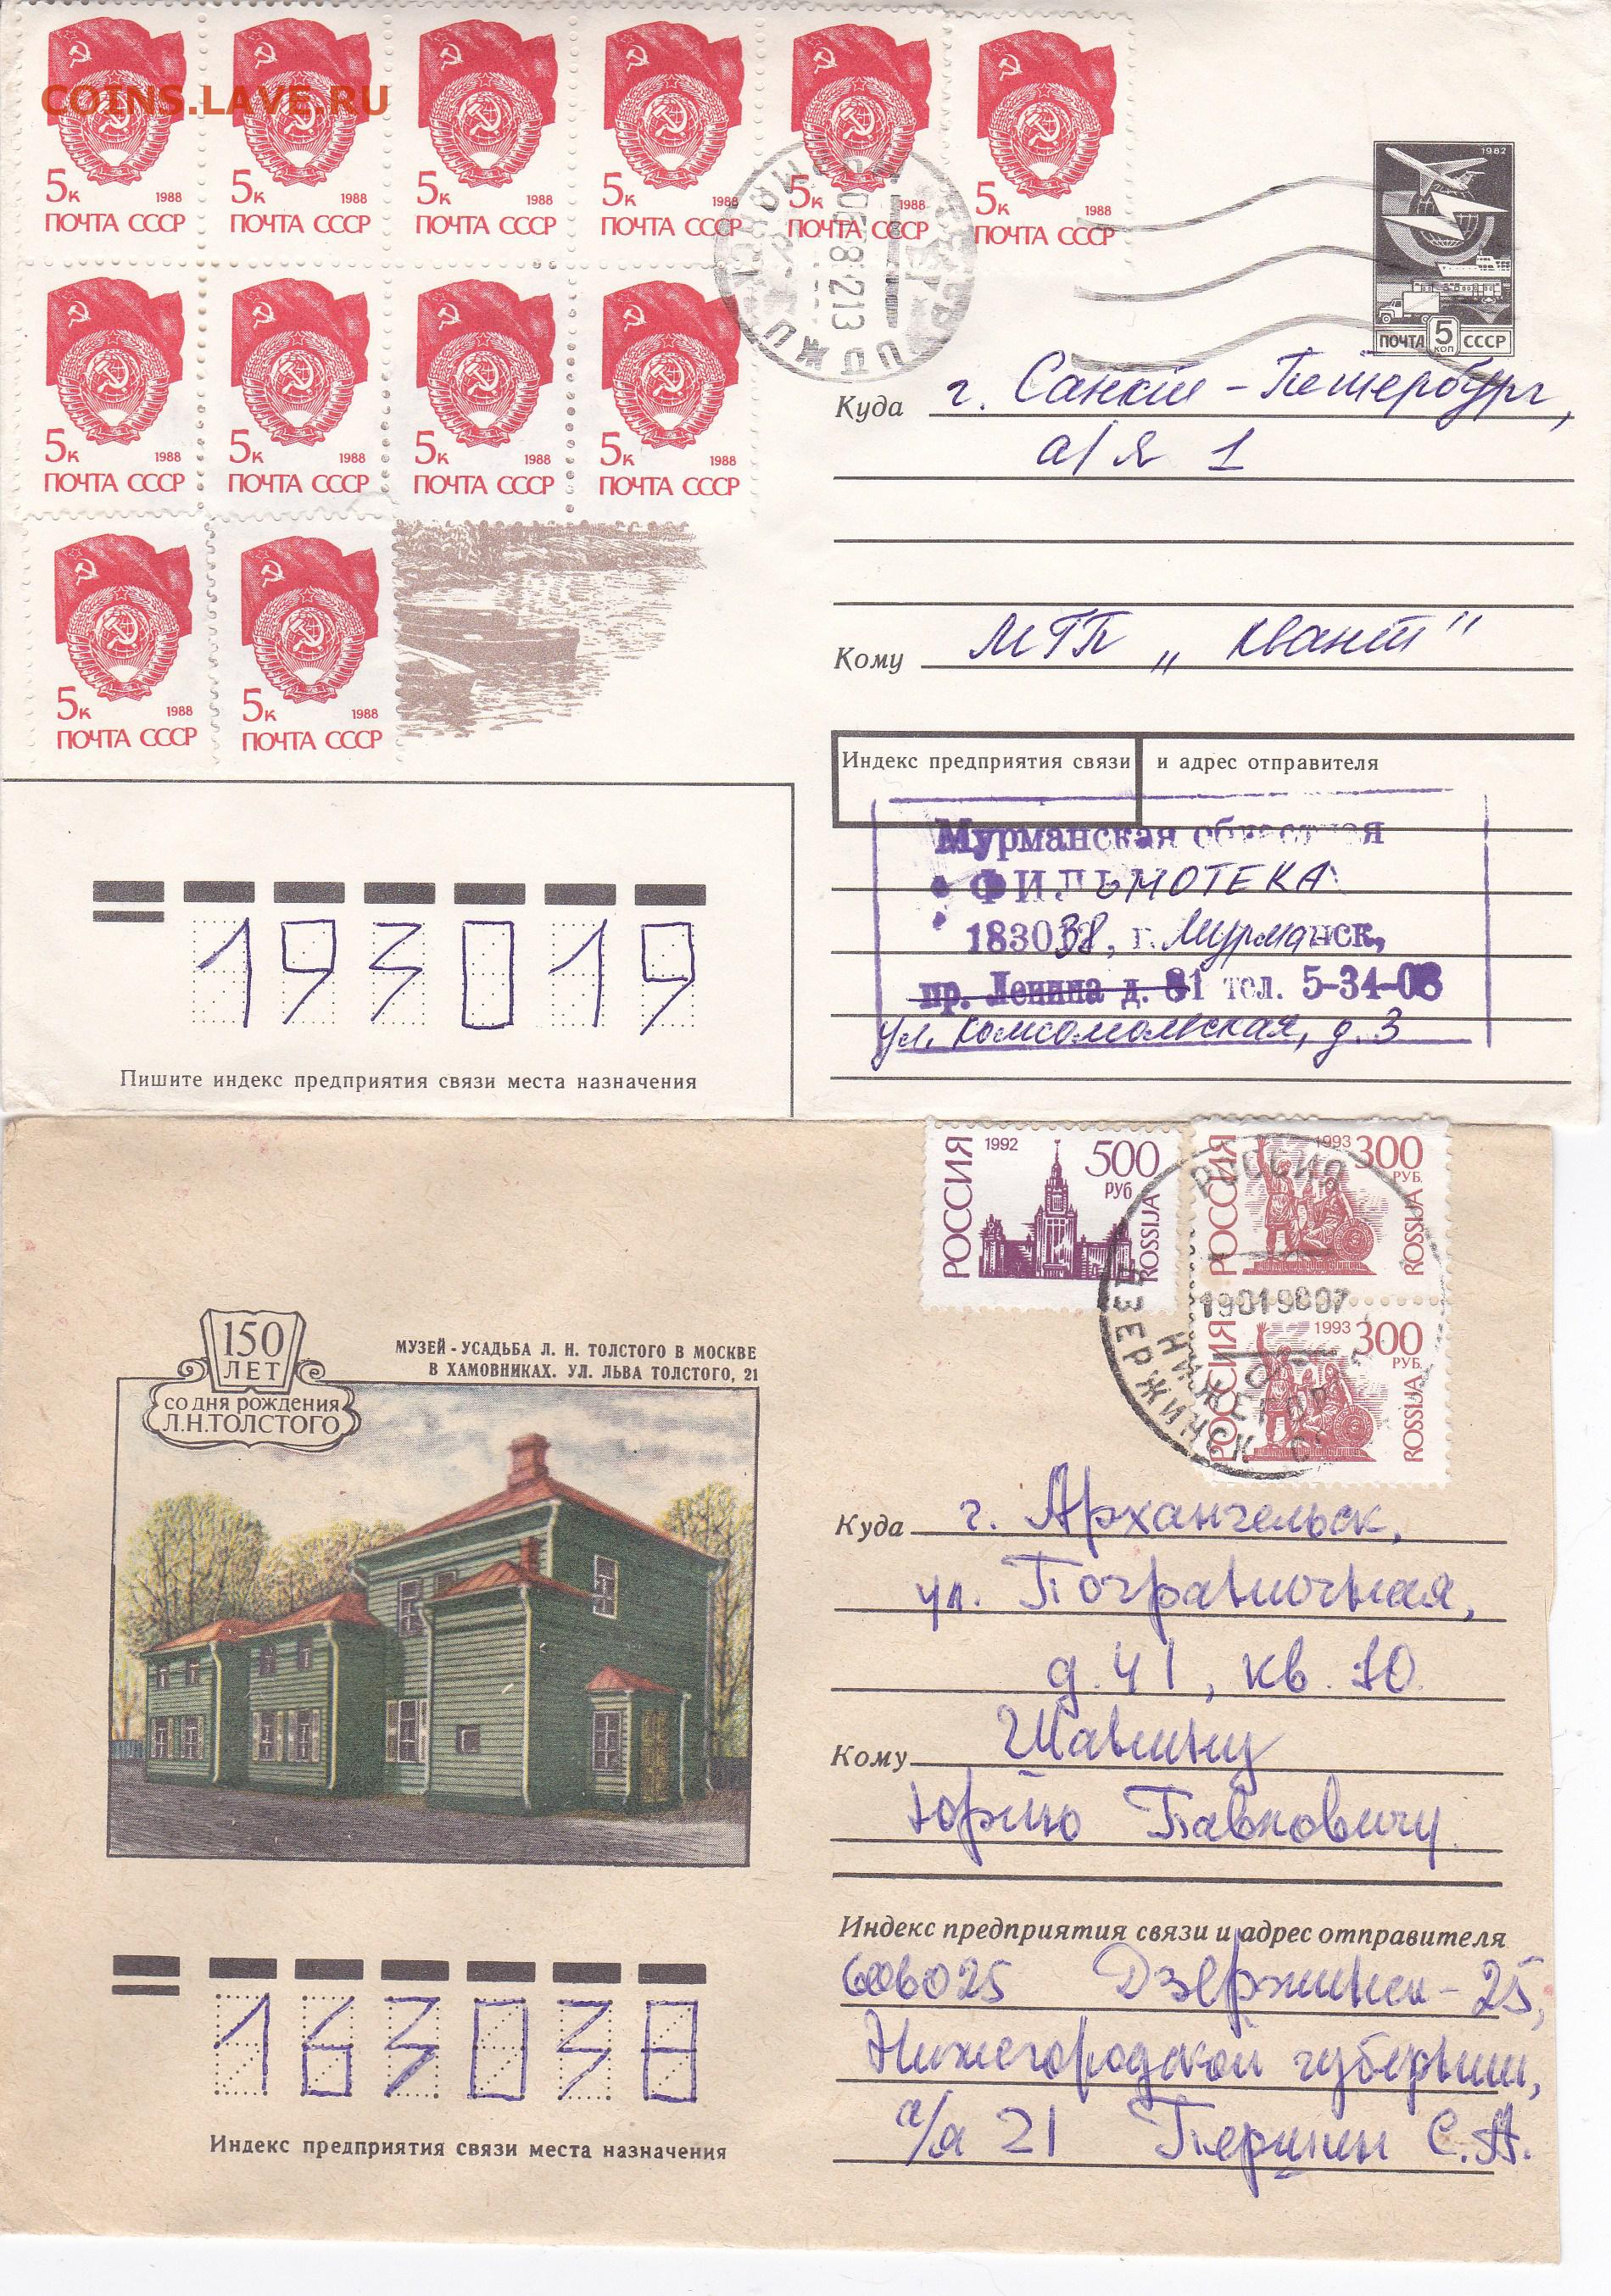 COINS.LAVE.RU
5к 1988
ПОЧТА СССР
5к 1988
ПОЧТА СССР
5к 1988
ПОЧТА СССР
5к 1988
ПОЧТА СССР
5к 1988
ПОЧТА СССР
5к 1988
ПОЧТА СССР
1982
ПОЧТА 5 КОП СССР
5к 1988
ПОЧТА СССР
5к 1988
ПОЧТА СССР
5к 1988
ПОЧТА СССР
5к 1988
ПОЧТА СССР
5к 1988
ПОЧТА СССР
5к 1988
ПОЧТА СССР
Куда г. Санкт-Петербург,
а/я 1
Кому МГП „Квант"
Индекс предприятия связи и адрес отправителя
Мурманская областная
ФИЛЬМОТЕКА
183038, г. Мурманск,
пр. Ленина д. 81 тел. 5-34-08
ул. Комсомольская, д. 3
193019
Пишите индекс предприятия связи места назначения
РОССИЯ 1992 500 РУБ ROSSIJA
РОССИЯ 1993 300 РУБ. ROSSIJA
РОССИЯ 1993 300 РУБ. ROSSIJA
РОССИЯ
ДЗЕРЖИНСК
НИЖЕГОР.
150
ЛЕТ
СО ДНЯ РОЖДЕНИЯ
Л.Н.ТОЛСТОГО
МУЗЕЙ-УСАДЬБА Л. Н. ТОЛСТОГО В МОСКВЕ
В ХАМОВНИКАХ. УЛ. ЛЬВА ТОЛСТОГО, 21
Куда г. Архангельск,
ул. Пограничная,
д. 41, кв. 10.
Кому Шавшину
Юрию Павловичу.
Индекс предприятия связи и адрес отправителя
606025 Дзержинск-25,
Нижегородской губернии,
а/я 21 С.А.
163038
Индекс предприятия связи места назначения